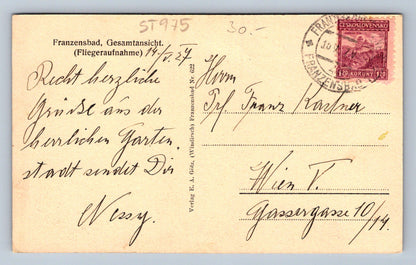 ST975
30.-
Franzensbad, Gesamtansicht.
(Fliegeraufnahme) 14/V. 27
Recht herzliche
Grüße aus der
herrlichen Garten-
stadt sendet Dir
Nessy.
Verlag E. A. Götz, (Windirsch) Franzensbad Nr 622
FRANZENSBAD
ČESKOSLOVENSKO
1·20 KORUNY 1·20
Herrn
Prf. Franz Kastner
Wien V.
Gassergasse 10/14.